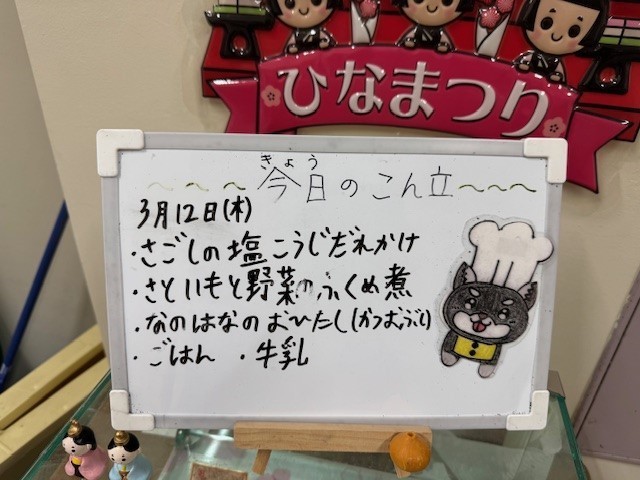 ひなまつり
きょう
～～～今日のこん立～～～
3月12日(木)
・さごしの塩こうじだれかけ
・さといもと野菜のふくめ煮
・なのはなのおひたし(かつおぶし)
・ごはん ・牛乳